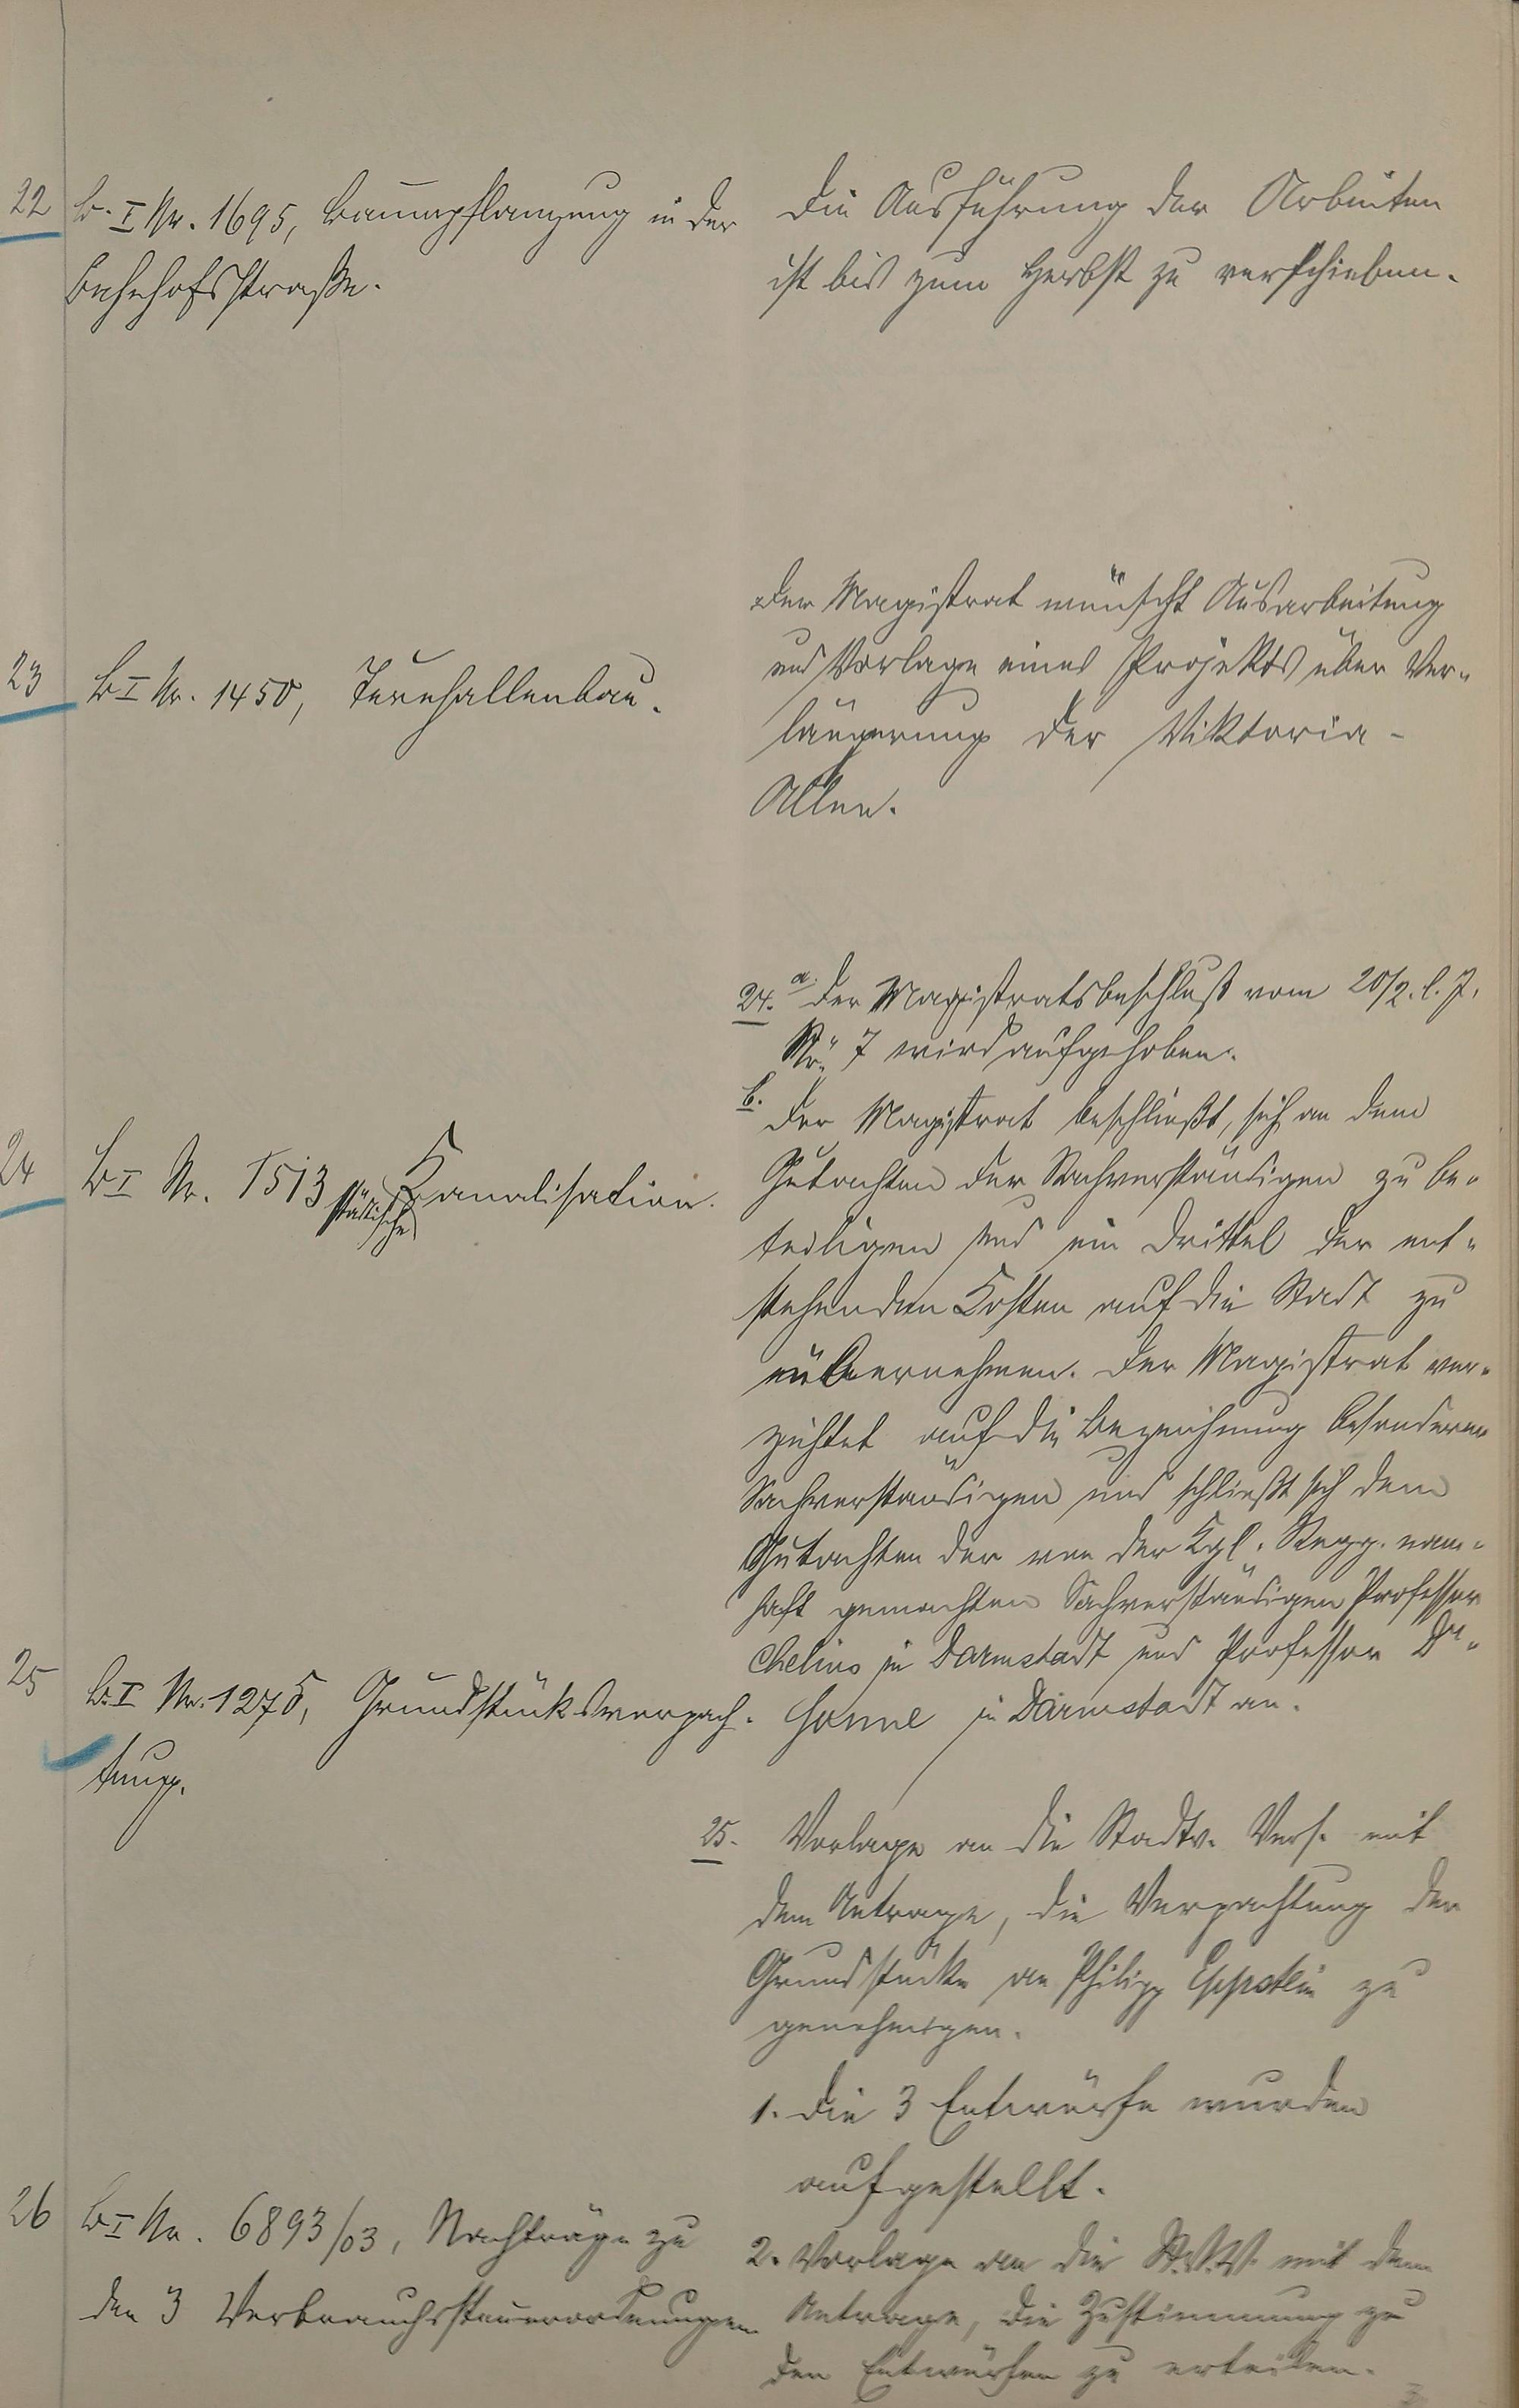 22 B. I Nr. 1695, Baumpflanzung in der
Bahnhofsstraße.
Die Ausführung der Arbeiten
ist bis zum Herbst zu verschieben.
23 B I Nr. 1450, Turnhallenbau.
Der Magistrat wünscht Ausarbeitung
und Vorlage eines Projekts über Ver-
längerung der Viktoria-
Allee.
24 B I Nr. 1513 städtische Kanalisation.
24. a. Der Magistratsbeschluß vom 20/2. l. J.
Nr. 7 wird aufgehoben.
b. Der Magistrat beschließt, sich an dem
Gutachten der Sachverständigen zu be-
teiligen und ein Drittel der ent-
stehenden Kosten auf die Stadt zu
übernehmen. Der Magistrat ver-
zichtet auf die Bezeichnung besonderer
Sachverständigen und schließt sich dem
Gutachten der von der Kgl. Regg. nam-
haft gemachten Sachverständigen Professor
Chelius in Darmstadt und Professor Dr.
Sonne in Darmstadt an.
25 B. I Nr. 1275, Grundstücksverpach-
tung.
25. Vorlage an die Stadtv. Vers. mit
dem Antrage, die Verpachtung der
Grundstücke an Philipp Eppstein zu
genehmigen.
26 B I Nr. 6893/03, Nachträge zu
den 3 Verbrauchssteuerordnungen
1. Die 3 Entwürfe wurden
aufgestellt.
2. Vorlage an die St.V.V. mit dem
Antrage, die Zustimmung zu
den Entwürfen zu erteilen.